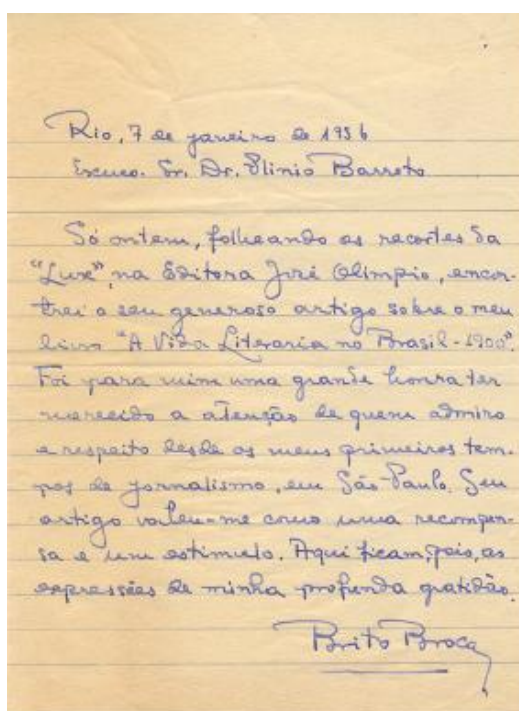 Rio, 7 de janeiro de 1956
Exmo. Sr. Dr. Plinio Barreto
Só ontem, folheando os recortes da
"Lux", na Editora José Olimpio, encon-
trei o seu generoso artigo sobre o meu
livro "A Vida Literaria no Brasil - 1900".
Foi para mim uma grande honra ter
merecido a atenção de quem admiro
e respeito desde os meus primeiros tem-
pos de jornalismo, em São Paulo. Seu
artigo valeu-me como uma recompen-
sa e um estimulo. Aqui ficam, pois, as
expressões de minha profunda gratidão.
Brito Broca